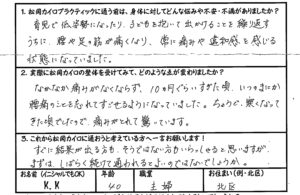 1. 松岡カイロプラクティックに通う前は、身体に対してどんな悩みや不安・不満がありましたか？
育児で低姿勢になったり、子どもを抱いて出かけることを繰り返す
うちに、腰や足の筋が痛くなり、常に痛みや違和感を感じる
状態になっていました。
2. 実際に松岡カイロの整体を受けてみて、どのような点が変わりましたか？
なかなか痛みがなくならず、10ヶ月ぐらいすぎた頃、いつのまにか
腰痛のことを忘れてすごせるようになっていました。ちょうど、寒くなって
きた頃でしたので、痛みがとれて驚いています。
3. これから松岡カイロに通おうと考えている方へ一言お願いします！
すぐに結果が出る方も、そうではない方もいらっしゃると思いますが、
まずは、しばらく続けて通われるとよいのではないでしょうか。
お名前（イニシャルでもOK） 年齢 職業 お住まい（例：北区）
K.K 40 主婦 北区